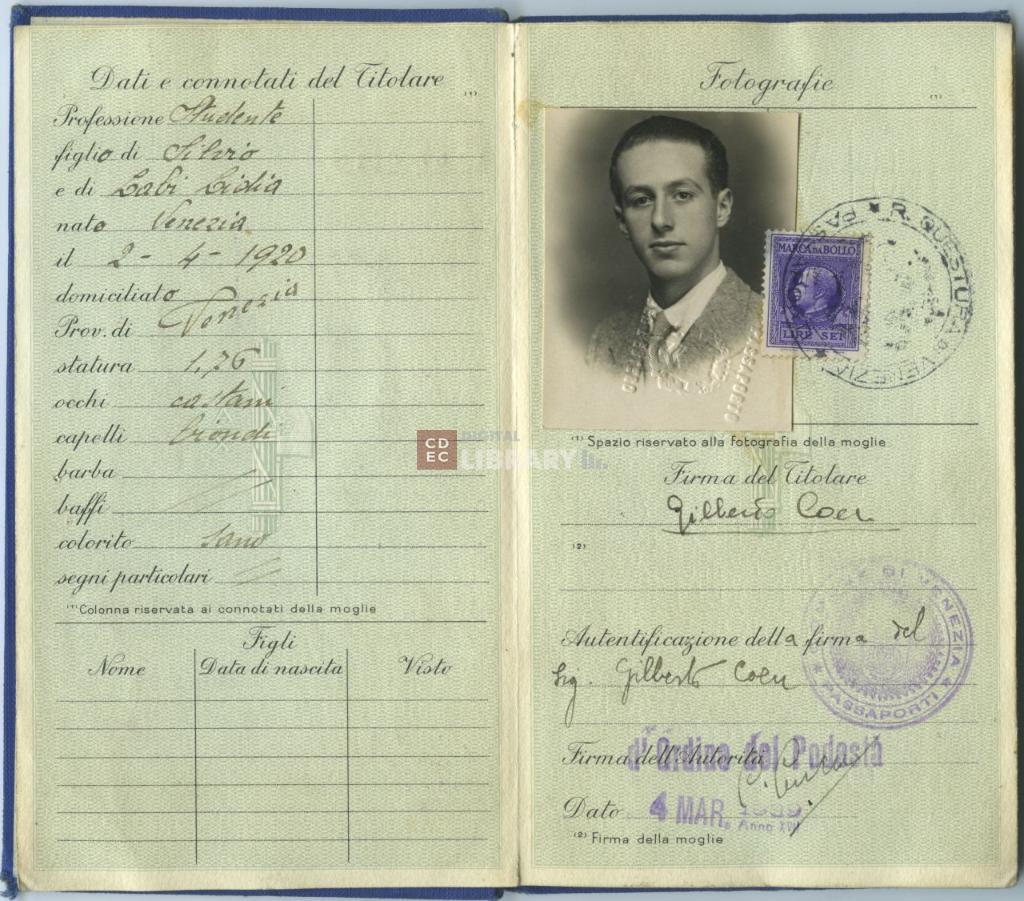 Dati e connotati del Titolare
(1)
Professione Studente
figlio di Silvio
e di Labi Lidia
nato Venezia
il 2 - 4 - 1920
domiciliato
Prov. di Venezia
statura 1,76
occhi castani
capelli biondi
barba
baffi
colorito sano
segni particolari
(1) Colonna riservata ai connotati della moglie
Figli
Nome Data di nascita Visto
Fotografie
(1)
MARCA DA BOLLO
LIRE SEI
R. QUESTURA DI VENEZIA
(1) Spazio riservato alla fotografia della moglie
CDEC DIGITAL LIBRARY
Firma del Titolare
Gilberto Coen
(2)
DI VENEZIA
PASSAPORTI
Autentificazione della firma del
Sig. Gilberto Coen
d'Ordine del Podestà
Firma dell'Autorità
Dato 4 MAR. 1939
Anno XVII
(2) Firma della moglie